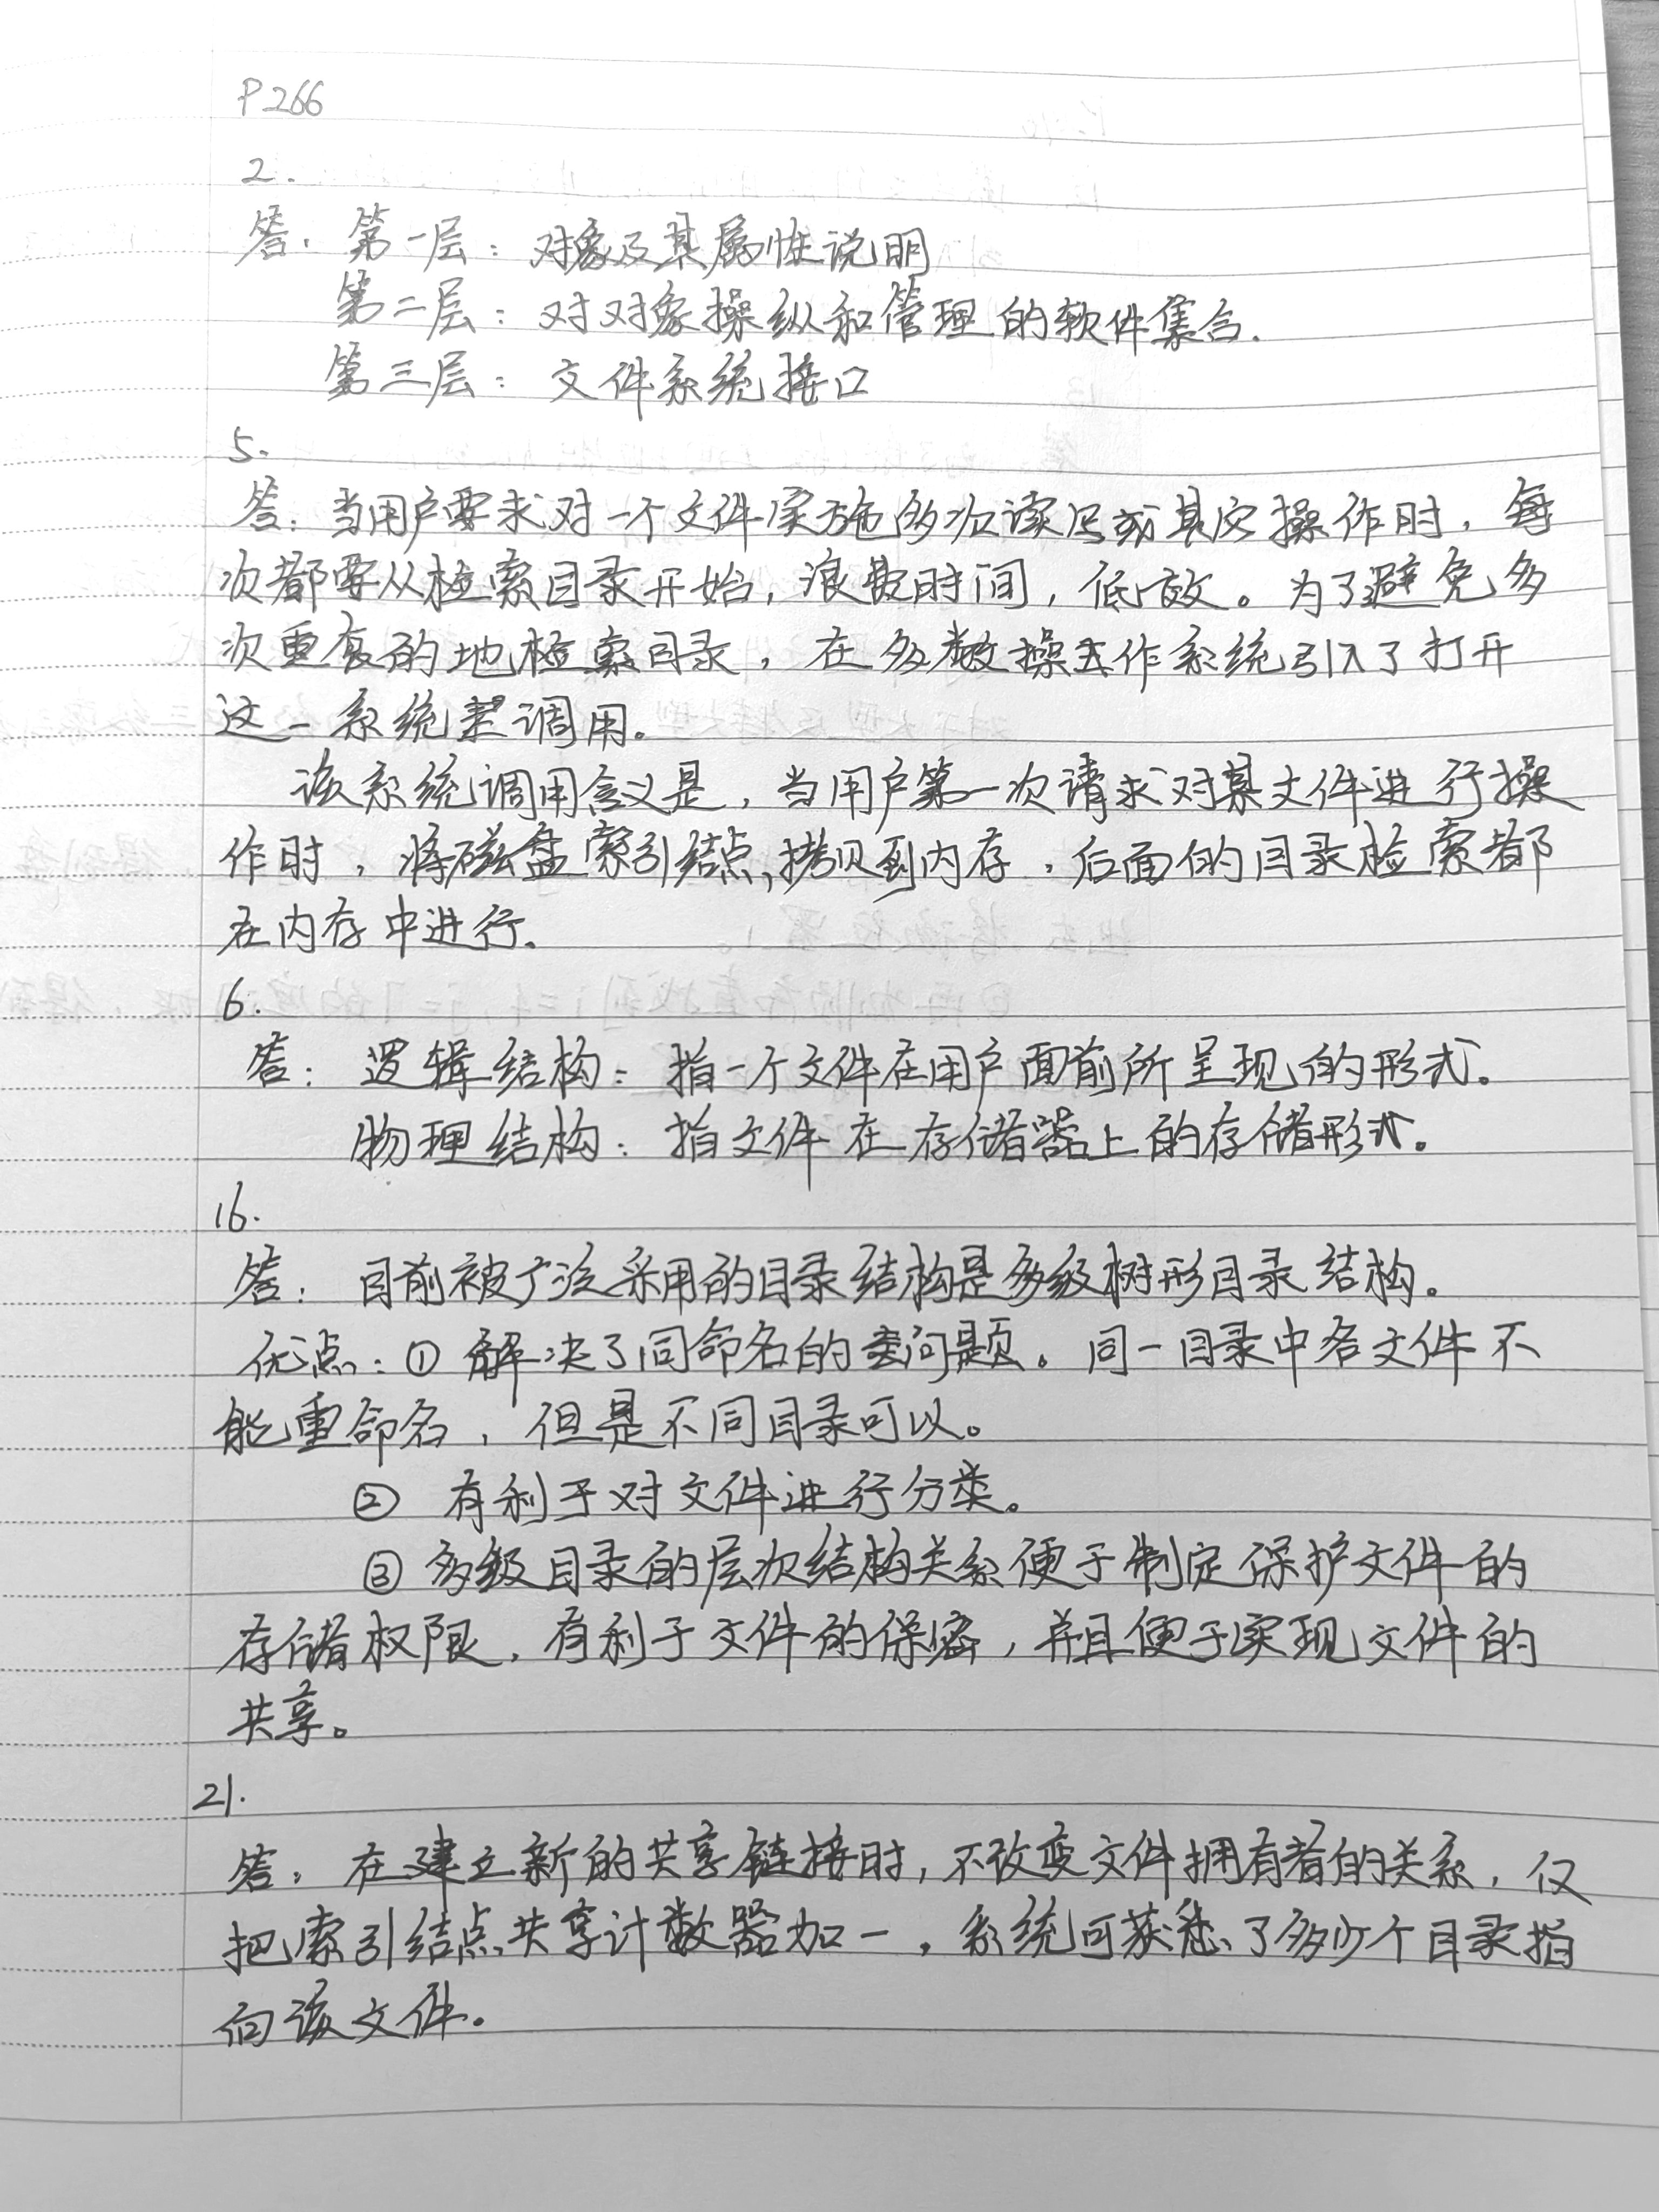 P266
2.
答：第一层：对象及其属性说明
第二层：对对象操纵和管理的软件集合.
第三层：文件系统接口
5.
答：当用户要求对一个文件实施多次读写或其它操作时，每
次都要从检索目录开始，浪费时间，低效。为了避免多
次重复的地检索目录，在多数操作系统引入了打开
这一系统调用。
该系统调用含义是，当用户第一次请求对某文件进行操
作时，将磁盘索引结点拷贝到内存，后面的目录检索都
在内存中进行.
6.
答：逻辑结构：指一个文件在用户面前所呈现的形式。
物理结构：指文件在存储器上的存储形式。
16.
答：目前被广泛采用的目录结构是多级树形目录结构。
优点：① 解决了同命名的问题。同一目录中各文件不
能重命名，但是不同目录可以。
② 有利于对文件进行分类。
③ 多级目录的层次结构关系便于制定保护文件的
存储权限，有利于文件的保密，并且便于实现文件的
共享。
21.
答：在建立新的共享链接时，不改变文件拥有者的关系，仅
把索引结点共享计数器加一，系统可获悉了多少个目录指
向该文件。